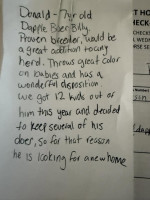 Donald - 7yr old
Dapple Boer Billy.
Proven breeder, would be
a great addition to any
herd. Throws great color
on babies and has a
wonderful disposition
We got 12 kids out of
him this year and decided
to keep several of his
does, so for that reason
he is looking for a new home